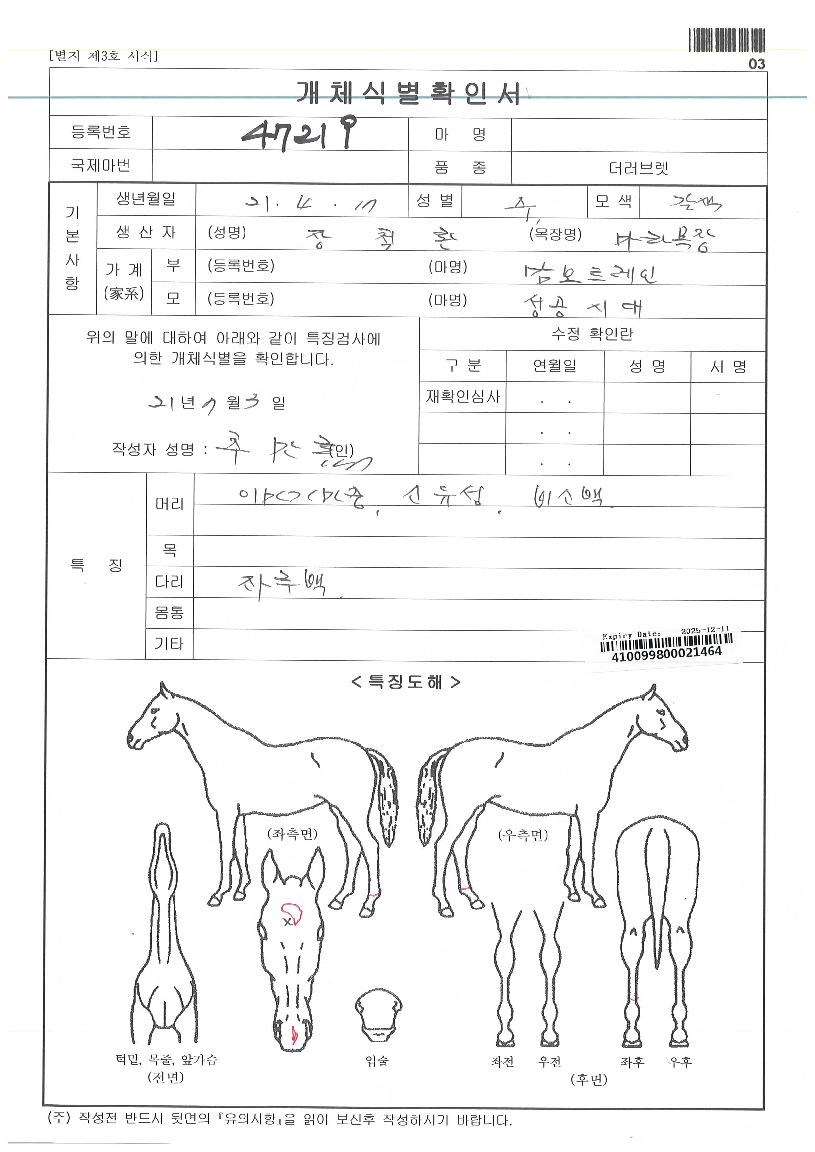 [별지 제3호 서식]
03
개체식별확인서
등록번호 47219 마 명
국제마번 품 종 더러브렛
기본사항
생년월일 21. 4. 17 성 별 수 모 색 갈색
생 산 자 (성명) 장 환 (목장명) 마리목장
가 계 (家系) 부 (등록번호) (마명) 캄보트레인
모 (등록번호) (마명) 성공시대
위의 말에 대하여 아래와 같이 특징검사에
의한 개체식별을 확인합니다.
21 년 7 월 3 일
작성자 성명 : (인)
수정 확인란
구 분 연월일 성 명 서 명
재확인심사 . .
. .
. .
특 징
머리 , 산류성, 비소백.
목
다리 좌후백.
몸통
기타
Expiry Date: 2025-12-11
410099800021464
< 특징도해 >
(좌측면) (우측면)
턱밑, 목줄, 앞가슴
(전면)
입술
좌전 우전 좌후 우후
(후면)
(주) 작성전 반드시 뒷면의 『유의사항』을 읽어 보신후 작성하시기 바랍니다.